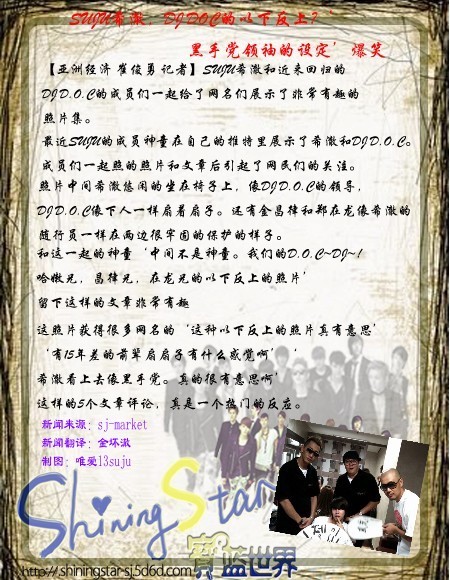 SUJU希澈 DJDOC的以下反上?’
黑手党领袖的设定’爆笑
【亚洲经济 崔俊勇 记者】SUJU希澈和近来回归的
DJD.O.C的成员们一起给了网名们展示了非常有趣的
照片集。
最近SUJU的成员神童在自己的推特里展示了希澈和DJD.O.C。
成员们一起照的照片和文章后引起了网民们的关注。
照片中间希澈悠闲的坐在椅子上，像DJD.O.C的领导，
DJD.O.C像下人一样扇着扇子。还有金昌律和郑在龙像希澈的
随行员一样在两边很牢固的保护的样子。
和这一起的神童‘中间不是神童。我们的D.O.C~DJ~！
哈嫩兄，昌律兄，在龙兄的以下反上的照片’
留下这样的文章非常有趣
这照片获得很多网名的‘这种以下反上的照片真有意思’
‘有15年差的前辈扇扇子有什么感觉啊’’
希澈看上去像黑手党。真的很有意思啊’
这样的5个文章评论，真是一个热门的反应。
新闻来源：sj-market
新闻翻译：金坏澈
制图：唯爱13suju
Shining Star
蓝世界
http://shiningstar-sj.5d6d.com/